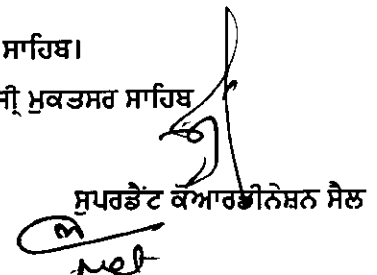 ਸਾਹਿਬ।
ਸ੍ਰੀ ਮੁਕਤਸਰ ਸਾਹਿਬ
ਸੁਪਰਡੈਂਟ ਕੋਆਰਡੀਨੇਸ਼ਨ ਸੈਲ